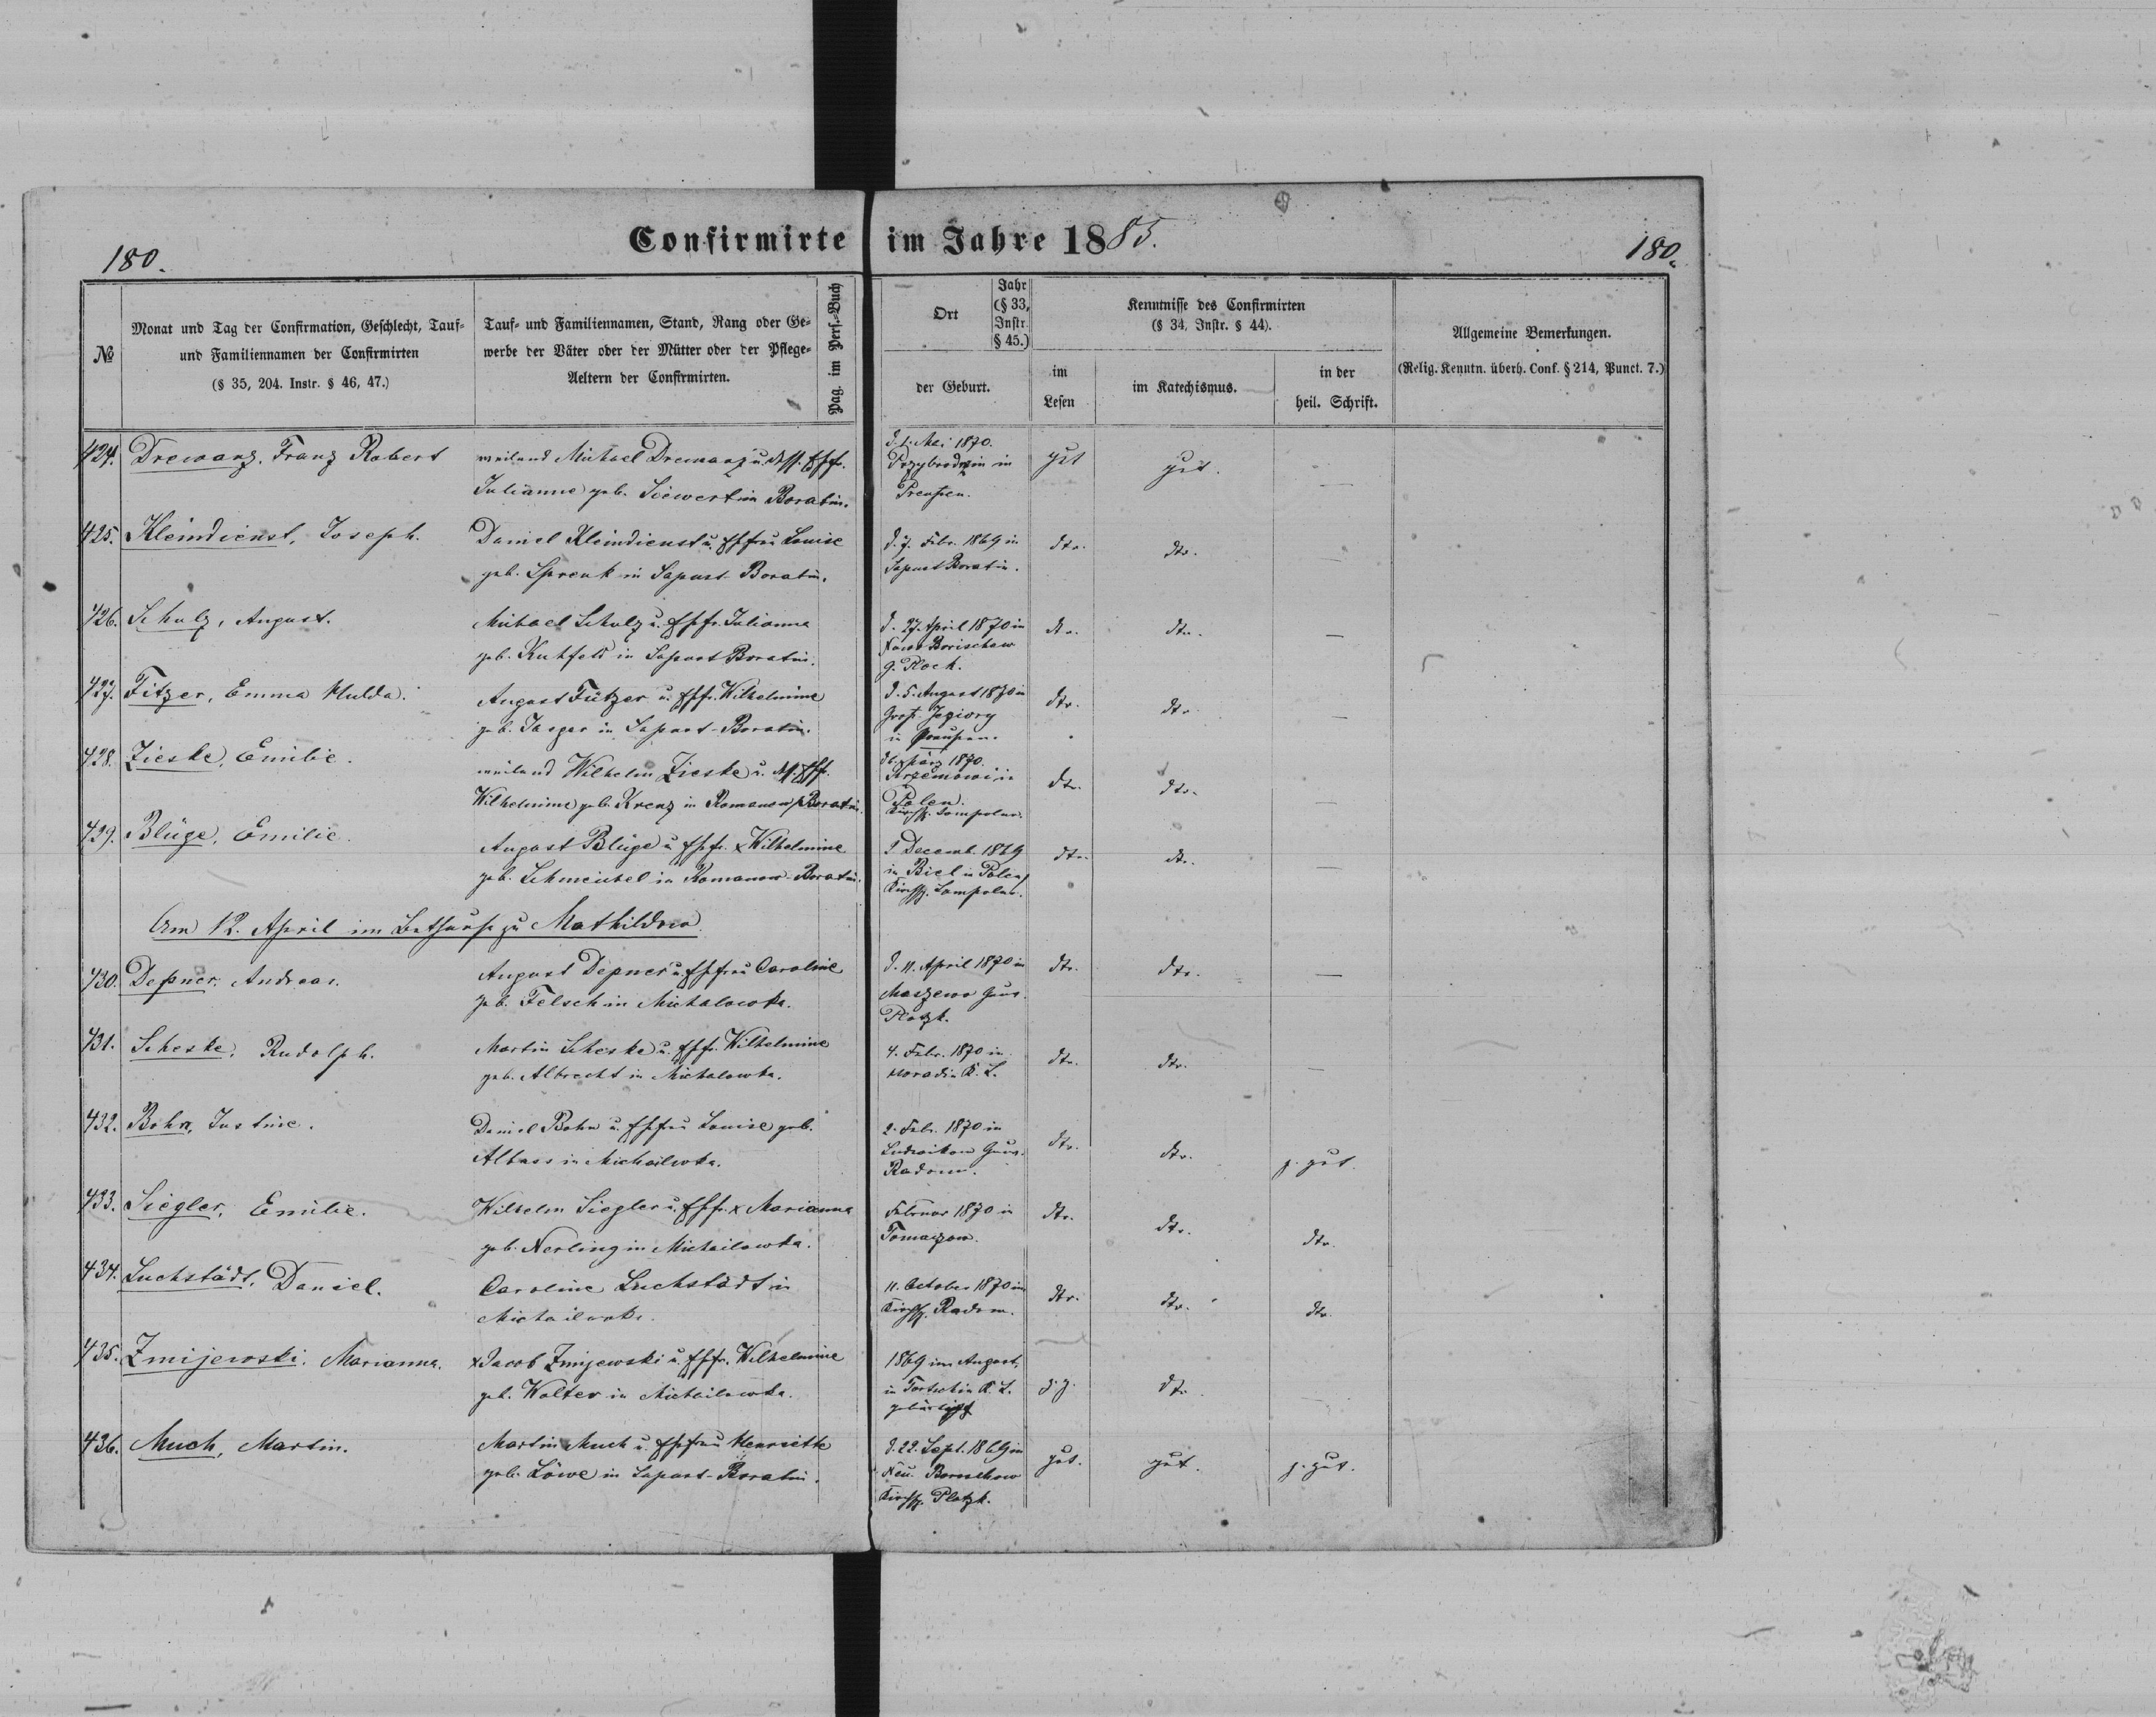 Confirmirte im Jahre 1885.
180.
180.
№
Monat und Tag der Confirmation, Geschlecht, Tauf-
und Familiennamen der Confirmirten
(§ 35, 204. Instr. § 46, 47.)
Tauf- und Familiennamen, Stand, Rang oder Ge-
werbe der Väter oder der Mütter oder der Pflege-
Aeltern der Confirmirten.
Pag. im Pers.-Buch
Ort
Jahr
(§ 33,
Instr.
§ 45.)
der Geburt.
Kenntnisse des Confirmirten
(§ 34, Instr. § 44).
im
Lesen
im Katechismus.
in der
heil. Schrift.
Allgemeine Bemerkungen.
(Relig. Kenntn. überh. Conf. § 214, Punct. 7.)
424. Drewanz, Franz Robert
weiland Michael Drewanz u. dess. Ehefr.
Julianne geb. Siewert in Boratin.
d. 1. Mai 1870.
in
Preußen.
gut
gut.
—
425. Kleindienst, Joseph.
Daniel Kleindienst u. Ehefrau Louise
geb. Sprenk in Sapust-Boratin.
d. 7. Febr. 1869 in
Sapust Boratin.
dto.
dto.
—
426. Schulz, August.
Michael Schulz u. Ehefr. Julianna
geb. Kuhfeld in Sapust Boratin.
d. 27. April 1870 in
Nowo Borischew
G. Plock.
dto.
dto.
—
427. Fitzer, Emma Hulda.
August Fützer u. Ehefr. Wilhelmine
geb. Jaeger in Sapust-Boratin.
d. 5. August 1870 in
Groß. Jeziory
in Preußen.
dto.
dto.
—
428. Zieske, Emilie.
weiland Wilhelm Zieske u. dess. Ehefr.
Wilhelmine geb. Krenz in Romanow-Boratin.
März 1870.
in
Polen.
Kirchsp. Sompolno.
dto.
dto.
—
429. Blüge, Emilie.
August Blüge u. Ehefr. x Wilhelmine
geb. Schmeichel in Romanow-Boratin.
Decemb. 1869
in Biel in Polen
Kirchsp. Sompolno.
dto.
dto.
—
Am 12. April im Bethause zu Mathildow.
430. Depner, Andreas.
August Depner u. Ehefrau Caroline
geb. Felsch in Michalowka.
d. 11. April 1870 in
Maszewo Guv.
Plozk.
dto.
dto.
—
431. Scheske, Rudolph.
Martin Scheske u. Ehefr. Wilhelmine
geb. Albrecht in Michalowka.
4. Febr. 1870 in
K. L.
dto.
dto.
—
432. Bohn, Justine.
Daniel Bohn u. Ehefrau Louise geb.
Albass in Michailowka.
2. Febr. 1870 in
Ludwikow Guv.
Radom.
dto.
dto.
z. gut.
433. Siegler, Emilie.
Wilhelm Siegler u. Ehefr. x Marianna
geb. Nerling in Michailowka.
Februar 1870 in
Tomaszow.
dto.
dto.
dto.
434. Luchstädt, Daniel.
Caroline Luchstädt in
Michailowka.
11. October 1870 in
Kirchsp. Radom.
dto.
dto.
dto.
435. Zmijewski, Marianna.
x Jacob Zmijewski u. Ehefr. Wilhelmine
geb. Wolter in Michailowka.
1869 im August,
in Tortschin K. L.
z. g.
dto.
—
436. Much, Martin.
Martin Much u. Ehefrau Henriette
geb. Löwe in Sapust-Boratin.
d. 22. Sept. 1869 in
Neu
Kirchsp. Plozk.
gut.
gut.
z. gut.